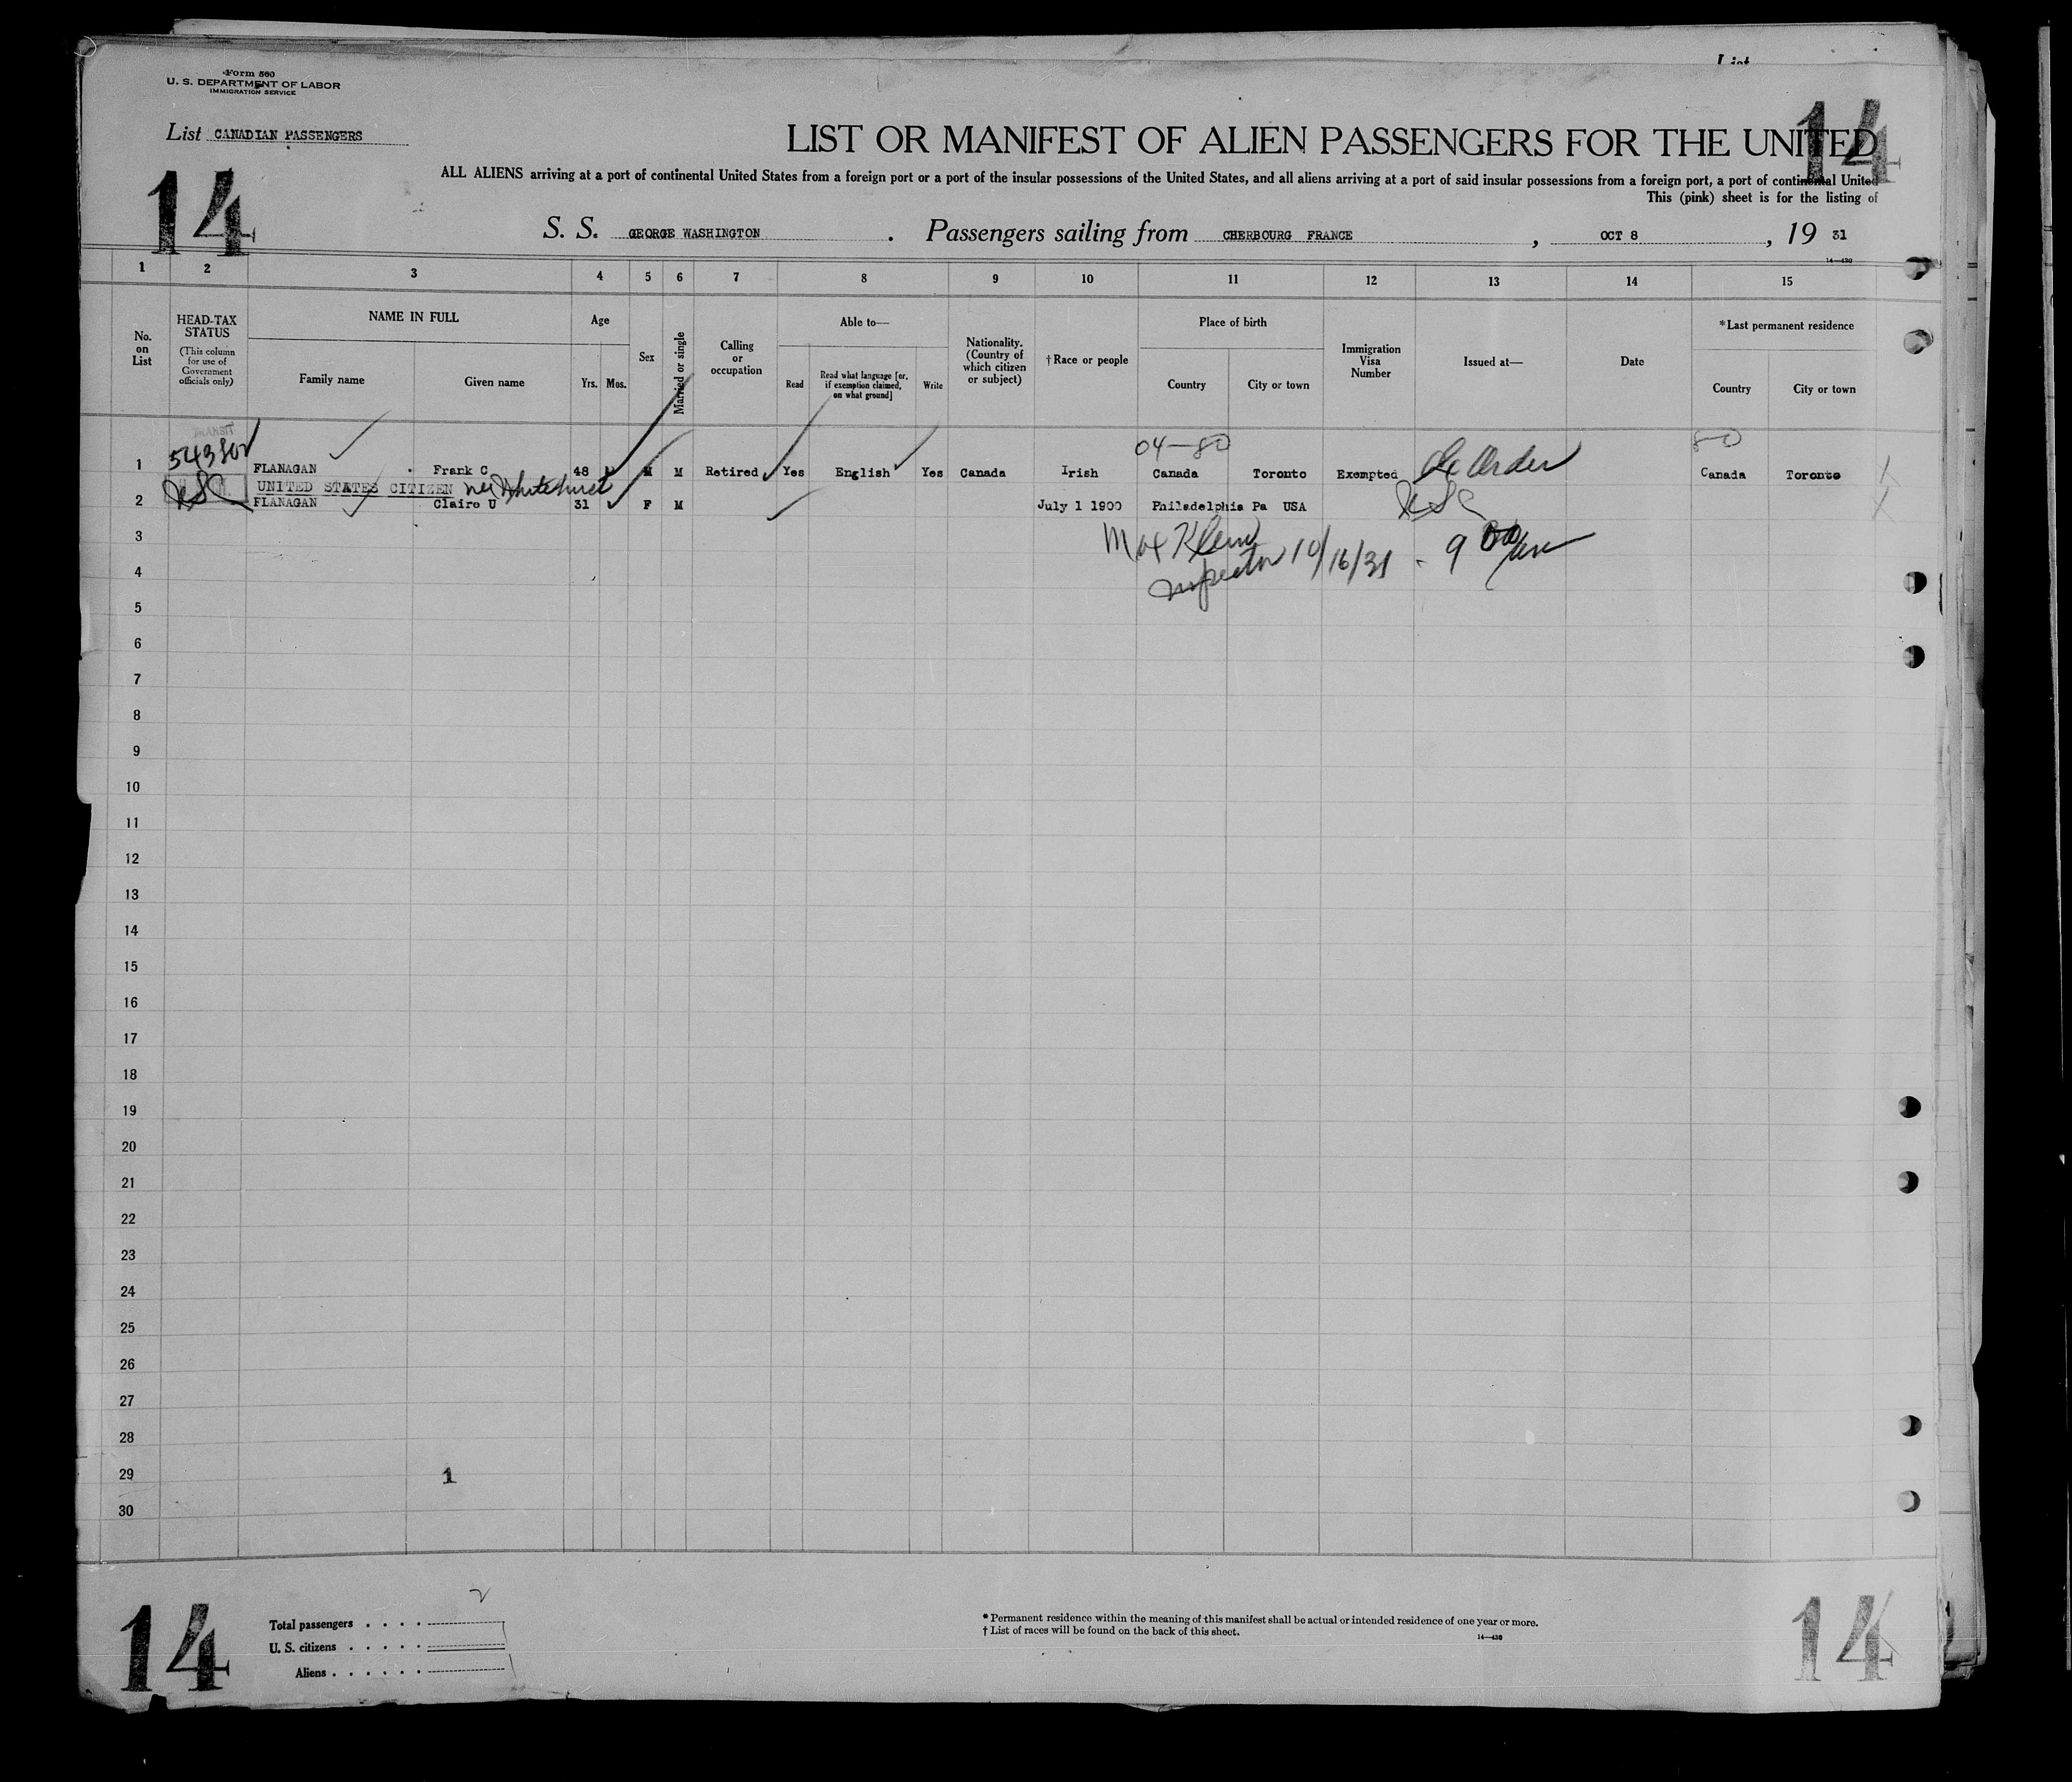 Form 500
U. S. DEPARTMENT OF LABOR
IMMIGRATION SERVICE
List
List CANADIAN PASSENGERS
14
14
LIST OR MANIFEST OF ALIEN PASSENGERS FOR THE UNITED
ALL ALIENS arriving at a port of continental United States from a foreign port or a port of the insular possessions of the United States, and all aliens arriving at a port of said insular possessions from a foreign port, a port of continental United
This (pink) sheet is for the listing of
S. S. GEORGE WASHINGTON . Passengers sailing from CHERBOURG FRANCE , OCT 8 , 19 31
14—430
1 2 3 4 5 6 7 8 9 10 11 12 13 14 15
No. on List
HEAD-TAX STATUS (This column for use of Government officials only)
NAME IN FULL
Family name Given name
Age
Yrs. Mos.
Sex
Married or single
Calling or occupation
Able to—
Read
Read what language [or, if exemption claimed, on what ground]
Write
Nationality. (Country of which citizen or subject)
†Race or people
Place of birth
Country City or town
Immigration Visa Number
Issued at—
Date
*Last permanent residence
Country City or town
TRANSIT
04—80 80
1 FLANAGAN Frank C 48 M M Retired Yes English Yes Canada Irish Canada Toronto Exempted Ex Order Canada Toronto
USC UNITED STATES CITIZEN nee Whitehurst USC
2 FLANAGAN Claire U 31 F M July 1 1900 Philsdelphis Pa USA
3 Max Klein
4 Inspector 10/16/31 - 9 00 am
5
6
7
8
9
10
11
12
13
14
15
16
17
18
19
20
21
22
23
24
25
26
27
28
29 1
30
14
14
2
Total passengers . . . .
U. S. citizens . . . . .
Aliens . . . . . .
* Permanent residence within the meaning of this manifest shall be actual or intended residence of one year or more.
† List of races will be found on the back of this sheet.
14—430